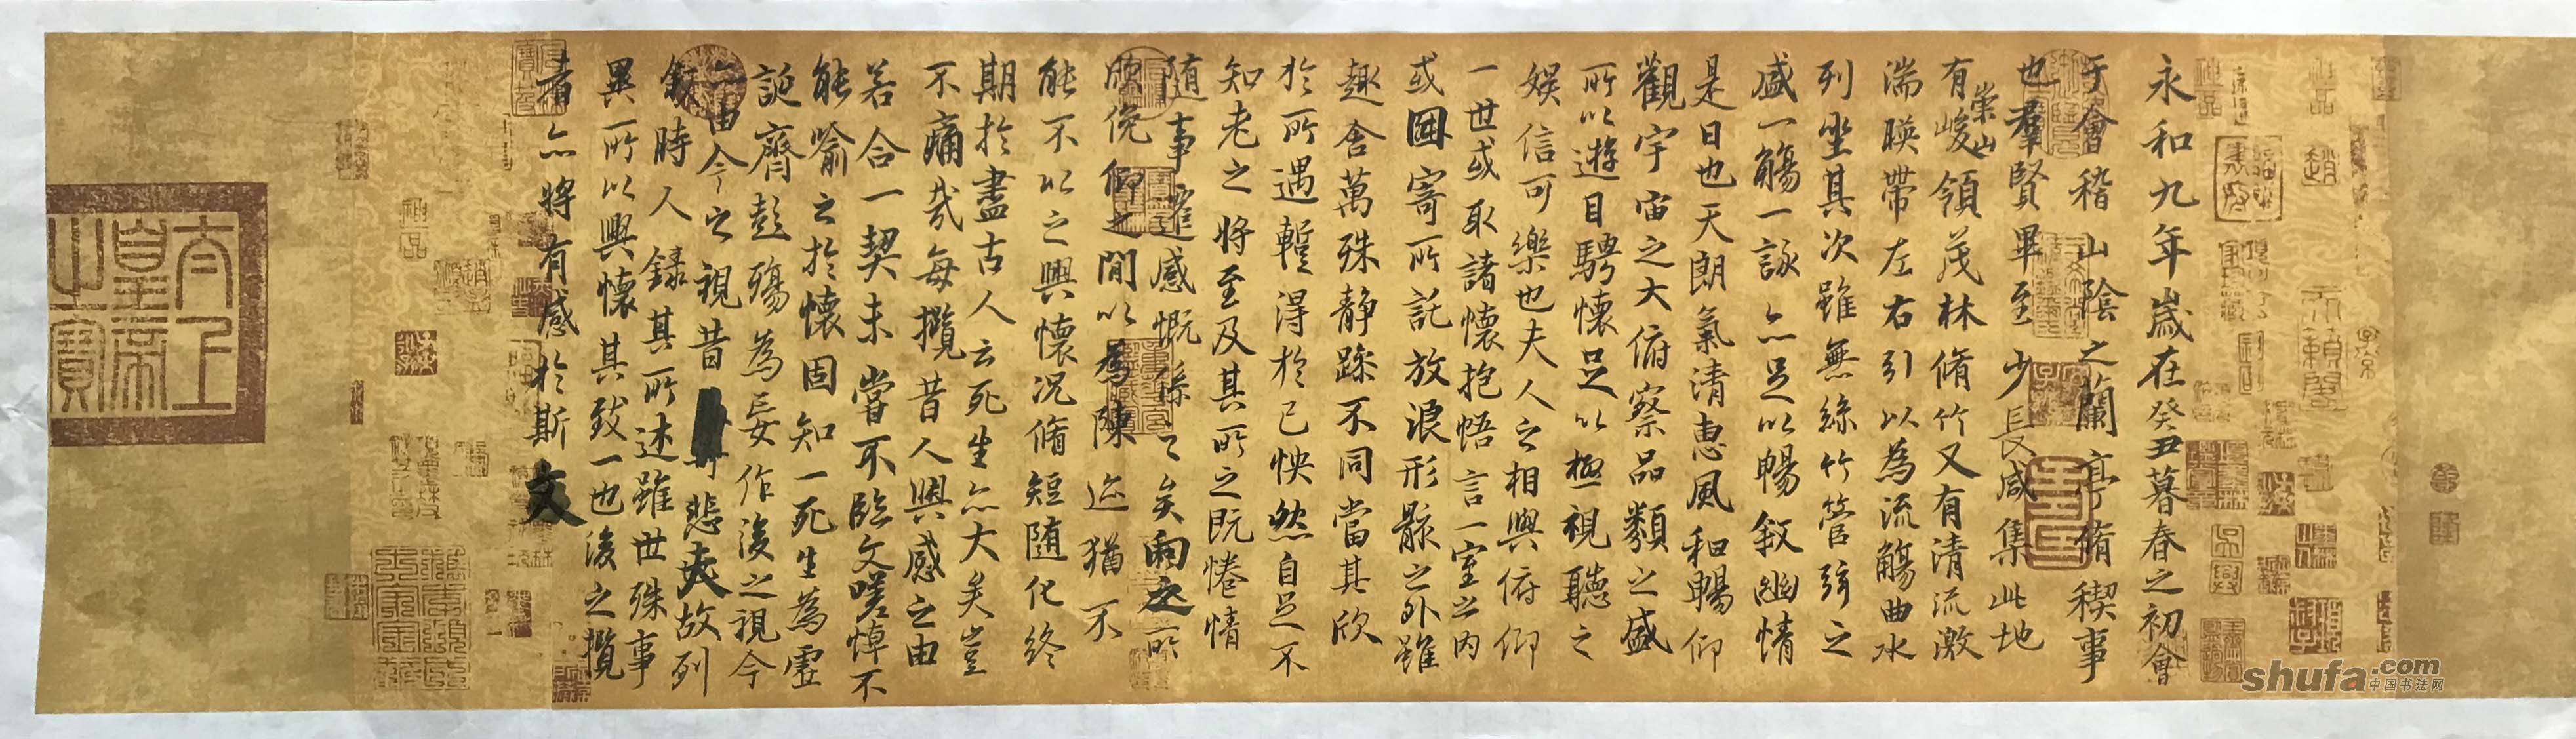 永和九年歲在癸丑暮春之初會
于會稽山陰之蘭亭脩稧事
也羣賢畢至少長咸集此地
有崇山峻領茂林脩竹又有清流激
湍暎帶左右引以為流觴曲水
列坐其次雖無絲竹管弦之
盛一觴一詠亦足以暢敘幽情
是日也天朗氣清惠風和暢仰
觀宇宙之大俯察品類之盛
所以遊目騁懷足以極視聽之
娛信可樂也夫人之相與俯仰
一世或取諸懷抱悟言一室之內
或因寄所託放浪形骸之外雖
趣舍萬殊靜躁不同當其欣
於所遇蹔得於己怏然自足不
知老之將至及其所之既惓情
隨事遷感慨係之矣向之所
欣俛仰之閒以為陳迹猶不
能不以之興懷況脩短隨化終
期於盡古人云死生亦大矣豈
不痛哉每攬昔人興感之由
若合一契未嘗不臨文嗟悼不
能喻之於懷固知一死生為虛
誕齊彭殤為妄作後之視今
亦由今之視昔悲夫故列
敘時人錄其所述雖世殊事
異所以興懷其致一也後之攬
者亦將有感於斯文
太上
皇帝
之寶
神品
shufa.com
中国书法网